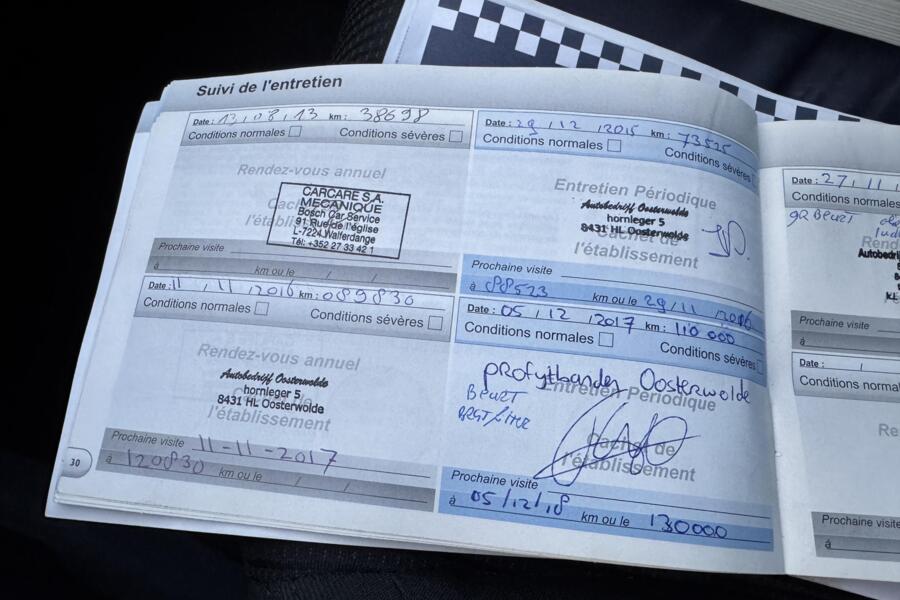 Suivi de l'entretien
Date : 13 / 08 / 13 km : 38698
Conditions normales Conditions sévères
Rendez-vous annuel
CARCARE S.A.
MECANIQUE
Bosch Car Service
91 Rue de l'église
L-7224 Walferdange
Tél: +352 27 33 42 1
l'établissement
Prochaine visite
à km ou le / /
Date : 29 / 12 / 2015 km : 73525
Conditions normales
Conditions sévères
Entretien Périodique
Autobedrijf Oosterwolde
hornleger 5
8431 HL Oosterwolde
Cachet de
l'établissement
Prochaine visite
à 88523 km ou le 29 / 11 / 2016
Date : 11 / 11 / 2016 km : 089830
Conditions normales
Conditions sévères
Rendez-vous annuel
Autobedrijf Oosterwolde
hornleger 5
8431 HL Oosterwolde
l'établissement
Prochaine visite 11-11-2017
à 120830 km ou le / /
Date : 05 / 12 / 2017 km : 110 000
Conditions normales
Conditions sévères
profytbanden Oosterwolde
Entretien Périodique
BEURT
Cachet de
l'établissement
Prochaine visite
à 05/12/18 km ou le 130000
30
Date : 27 / 11
Conditions normales
GR BEURT
Rend
Autobedri
Prochaine visite
à
Date : /
Conditions norma
Re
Prochaine visite
à